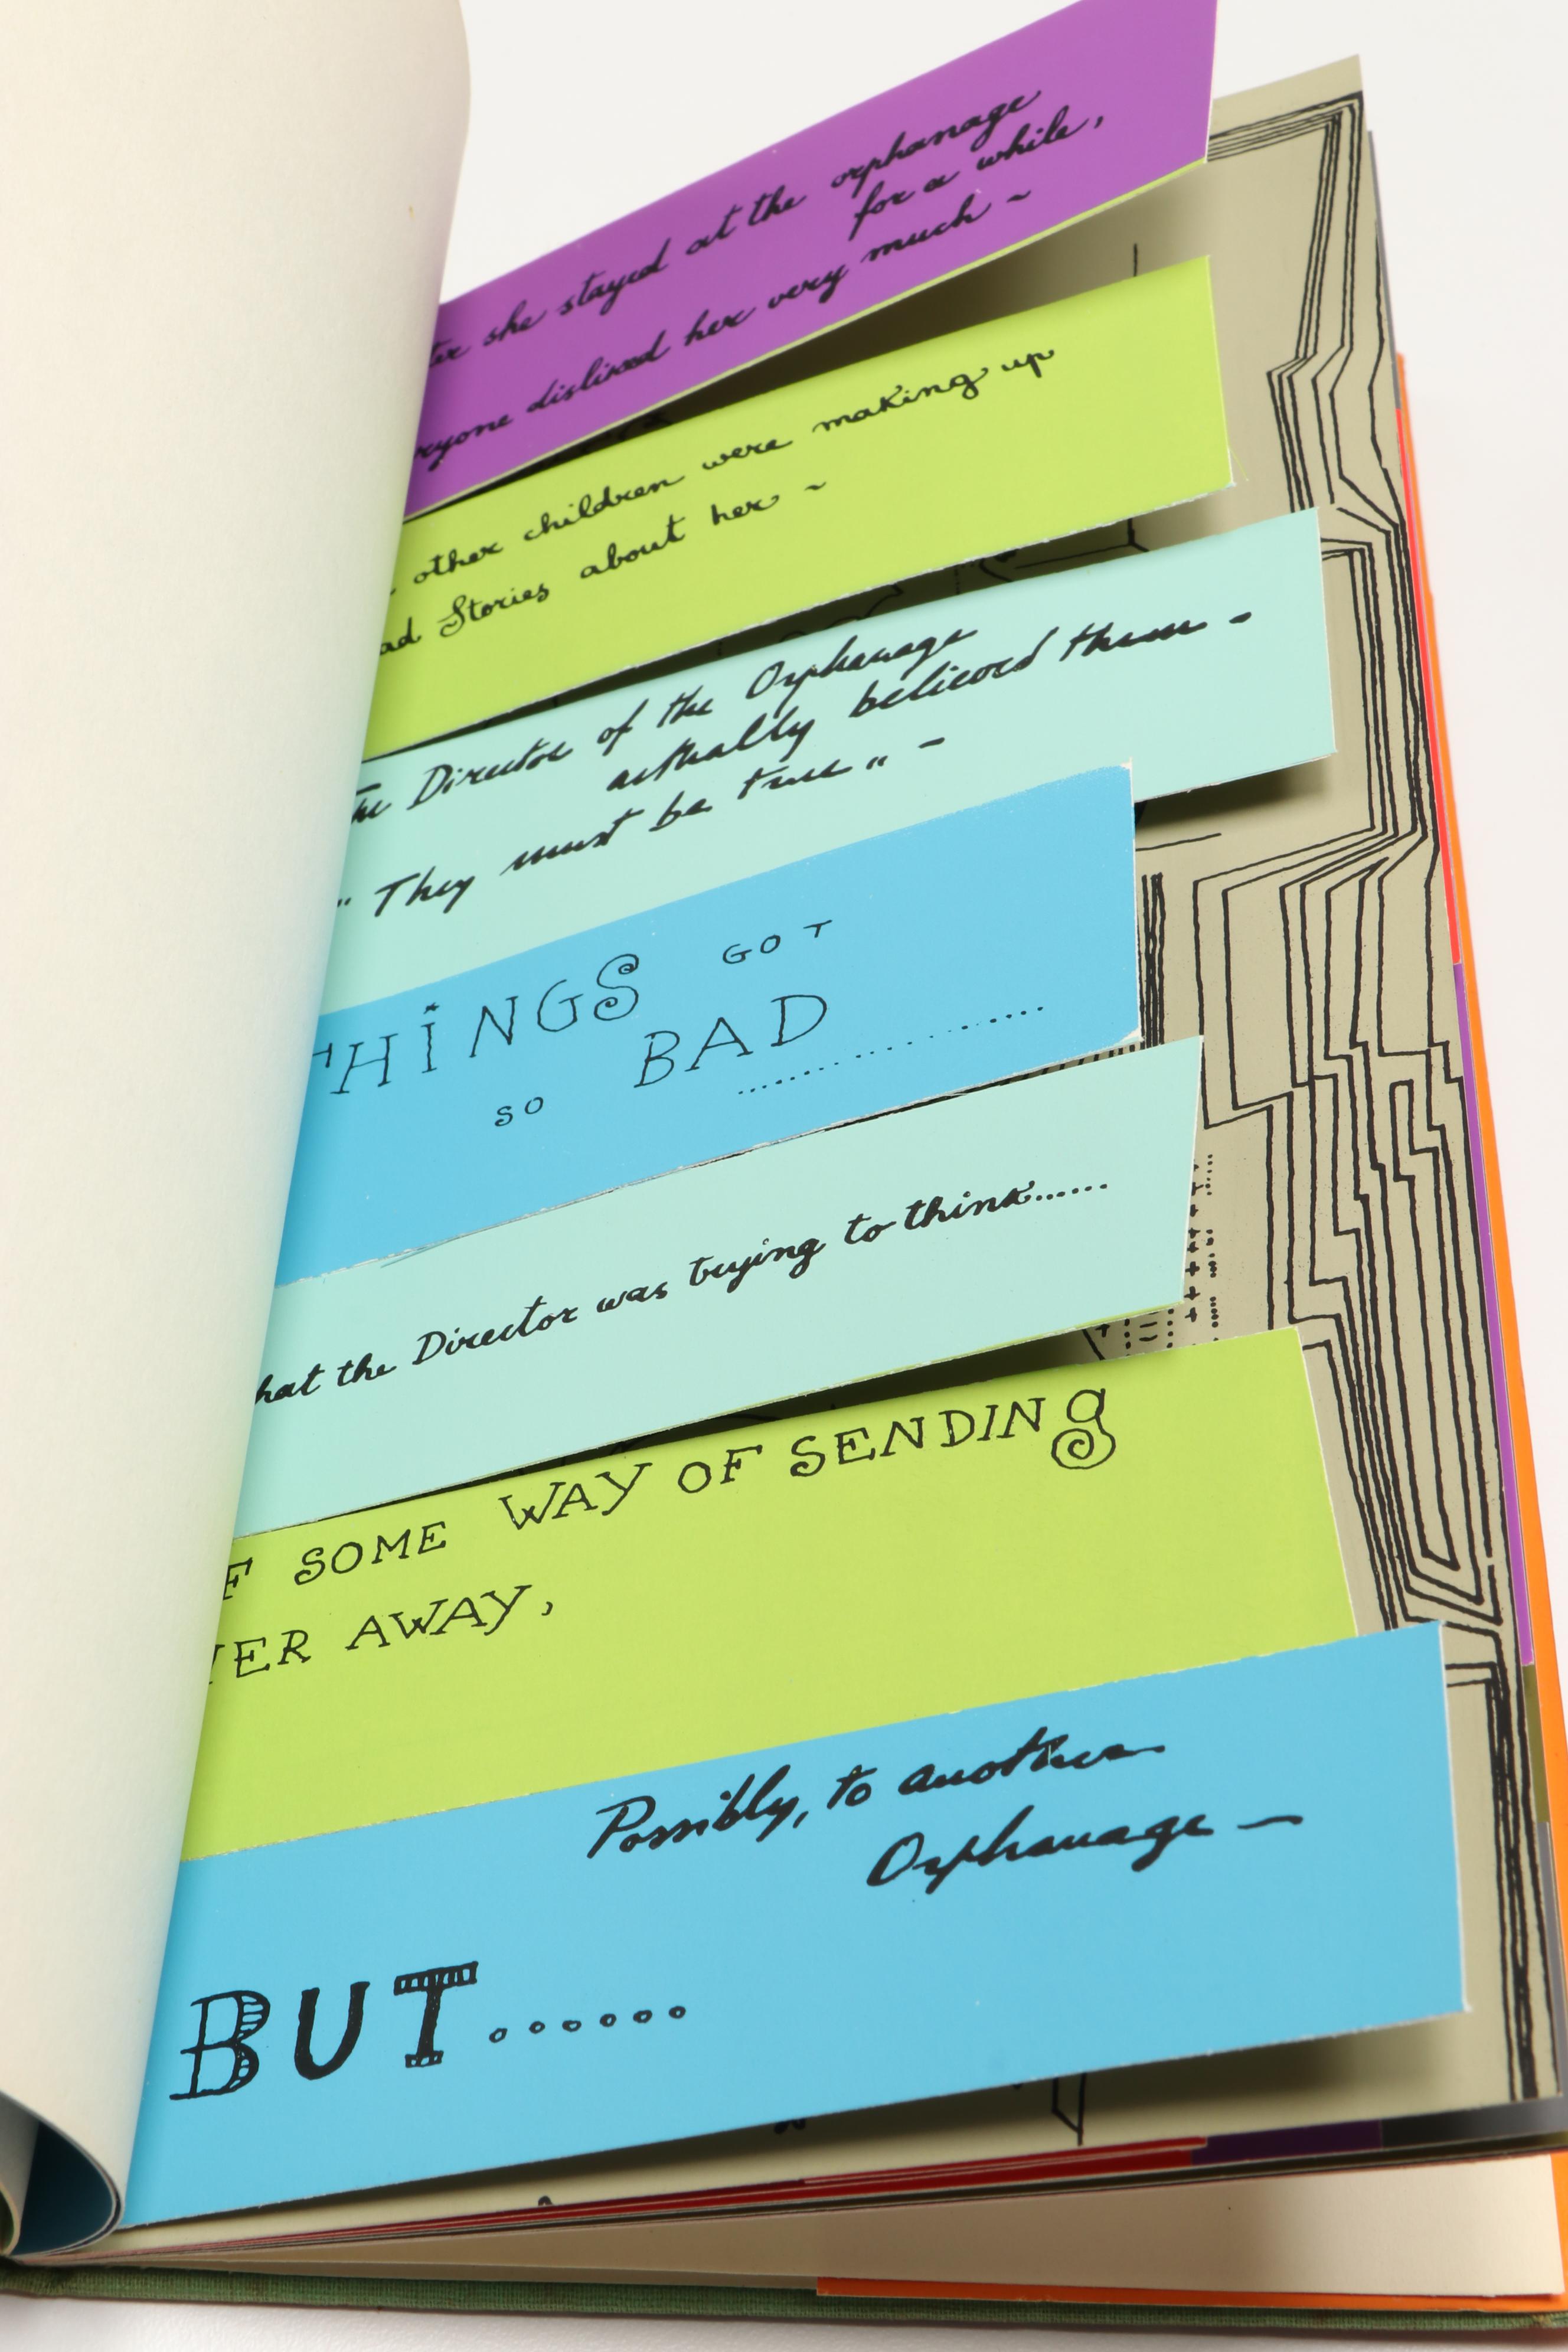 ter she stayed at the orphanage
for a while,
ryone disliked her very much ~
other children were making up
ad Stories about her ~
The Director of the Orphanage
actually believed them -
"They must be true" -
THINGS GOT
SO BAD ..............
hat the Director was trying to think......
F SOME WAY OF SENDING
HER AWAY,
Possibly, to another
Orphanage —
BUT......